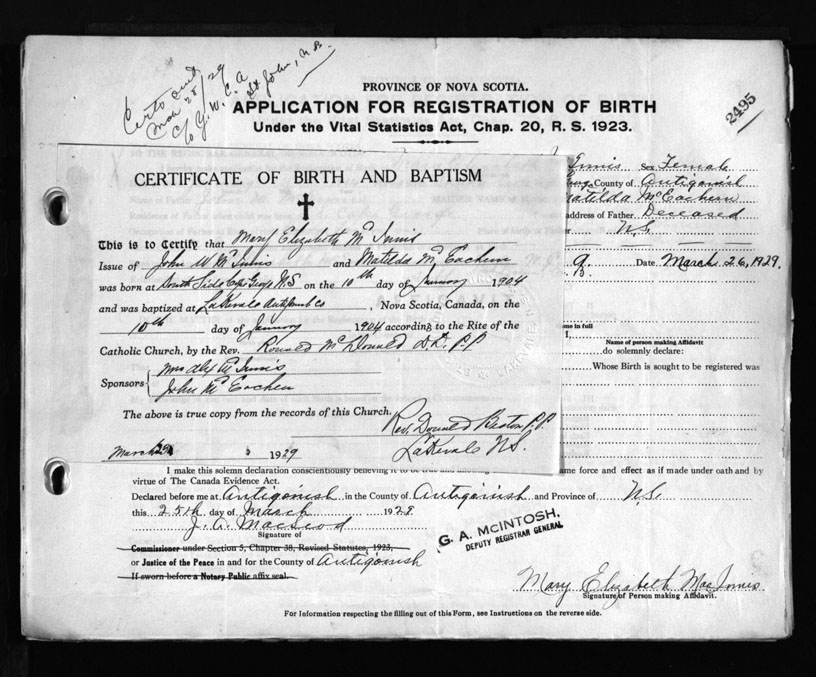 Certs out
Mar 28/29
c/o Y.W.C.A
St John, N.B.
PROVINCE OF NOVA SCOTIA.
APPLICATION FOR REGISTRATION OF BIRTH
Under the Vital Statistics Act, Chap. 20, R. S. 1923.
2495
Innis Sex Female
County of Antigonish
Matilda McEachern
address of Father Deceased
N.S.
Date March 26, 1929.
CERTIFICATE OF BIRTH AND BAPTISM
This is to Certify that Mary Elizabeth Mc Innis
Issue of John W Mc Innis and Matilda Mc Eachern
was born at South Side Cape George N.S on the 10th day of January 1904
and was baptized at Lakevale Antigonish Co, Nova Scotia, Canada, on the
10th day of January 1904 according to the Rite of the
Catholic Church, by the Rev. Ronald McDonald D.D. P.P
Sponsors { Mrs Alex Mc Innis
John Mc Eachen
The above is true copy from the records of this Church.
Rev. Donald Beaton P.P.
March 1929 Lakevale N.S.
me in full
Name of person making Affidavit
I,
do solemnly declare:
Whose Birth is sought to be registered was
I make this solemn declaration conscientiously believing it to be true and ame force and effect as if made under oath and by
virtue of The Canada Evidence Act.
Declared before me at Antigonish in the County of Antigonish and Province of N.S.
this 25th day of March 1929
J. A. MacLeod
Signature of
Commissioner under Section 5, Chapter 38, Revised Statutes, 1923,
or Justice of the Peace in and for the County of Antigonish
If sworn before a Notary Public affix seal.
G. A. McINTOSH,
DEPUTY REGISTRAR GENERAL
Mary Elizabeth MacInnis
Signature of Person making Affidavit.
For Information respecting the filling out of this Form, see Instructions on the reverse side.